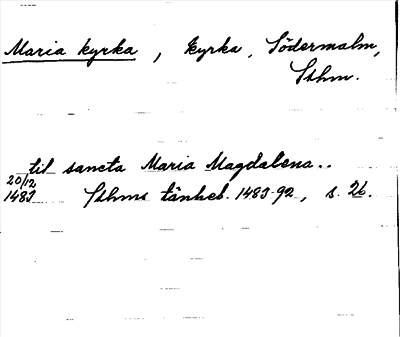 Maria kyrka, kyrka, Södermalm,
Sthm.
til sancta Maria Magdalena..
20/12
1483 Sthms tänkeb. 1483-92, s. 26.